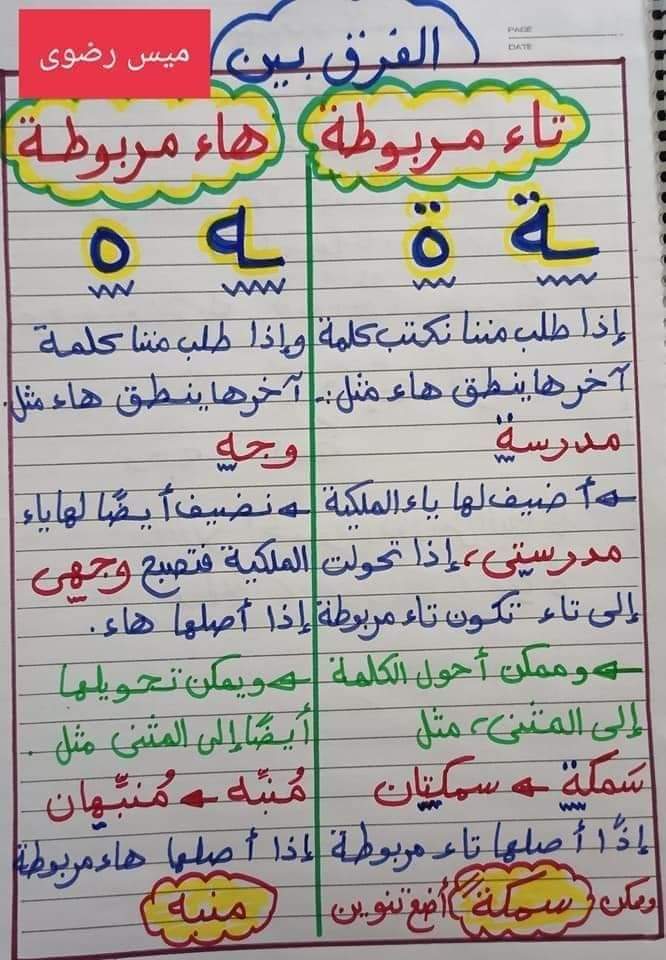 ميس رضوى
PAGE
DATE
الفرق بين
تاء مربوطة
ـة ة
إذا طلب مننا نكتب كلمة
آخرها ينطق هاء مثل:-
مدرسة
أضيف لها ياء الملكية
مدرستي، إذا تحولت
إلى تاء تكون تاء مربوطة
وممكن أحول الكلمة
إلى المثنى، مثل
سَمكة ← سمكتان
إذًا أصلها تاء مربوطة
ويمكن سمكةً أضع تنوين
هاء مربوطة
ـه ه
وإذا طلب مننا كلمة
آخرها ينطق هاء مثل.
وجه
نضيف أيضًا لها ياء
الملكية فتصبح وجهي
إذا أصلها هاء.
ويمكن تحويلها
أيضًا إلى المثنى مثل.
مُنبِّه ← مُنبِّهان
إذا أصلها هاء مربوطة
منبه